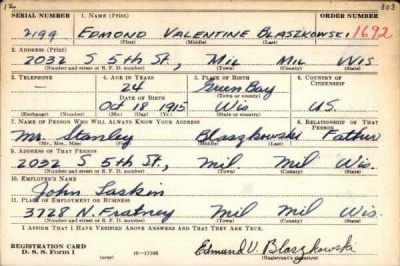 12 303
SERIAL NUMBER 1. NAME (Print) ORDER NUMBER
2199 EDMOND VALENTINE BLASZKOWSKI 1692
(First) (Middle) (Last)
2. ADDRESS (Print)
2032 S 5th St., Mil Mil Wis.
(Number and street or R. F. D. number) (Town) (County) (State)
3. TELEPHONE 4. AGE IN YEARS 5. PLACE OF BIRTH 6. COUNTRY OF CITIZENSHIP
— 24 Green Bay
DATE OF BIRTH (Town or county)
Oct 18 1915 Wis U.S.
(Exchange) (Number) (Mo.) (Day) (Yr.) (State or country)
7. NAME OF PERSON WHO WILL ALWAYS KNOW YOUR ADDRESS 8. RELATIONSHIP OF THAT PERSON
Mr. Stanley Blaszkowski Father
(Mr., Mrs., Miss) (First) (Middle) (Last)
9. ADDRESS OF THAT PERSON
2032 S 5th St., Mil. Mil Wis.
(Number and street or R. F. D. number) (Town) (County) (State)
10. EMPLOYER'S NAME
John Laskin
11. PLACE OF EMPLOYMENT OR BUSINESS
3728 N. Fratney Mil Mil Wis.
(Number and street or R. F. D. number) (Town) (County) (State)
I AFFIRM THAT I HAVE VERIFIED ABOVE ANSWERS AND THAT THEY ARE TRUE.
REGISTRATION CARD Edmund V. Blaszkowski
D. S. S. Form 1 (over) 16—17105 (Registrant's signature)